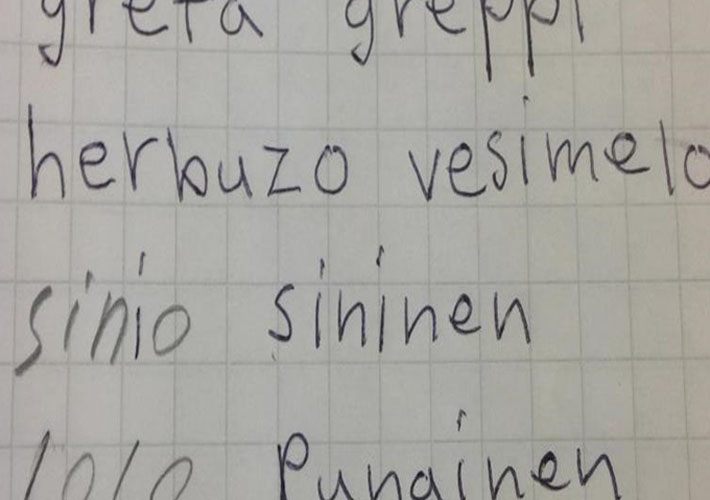 greta greppi
herbuzo vesimelo
sinio sininen
lolo Punainen